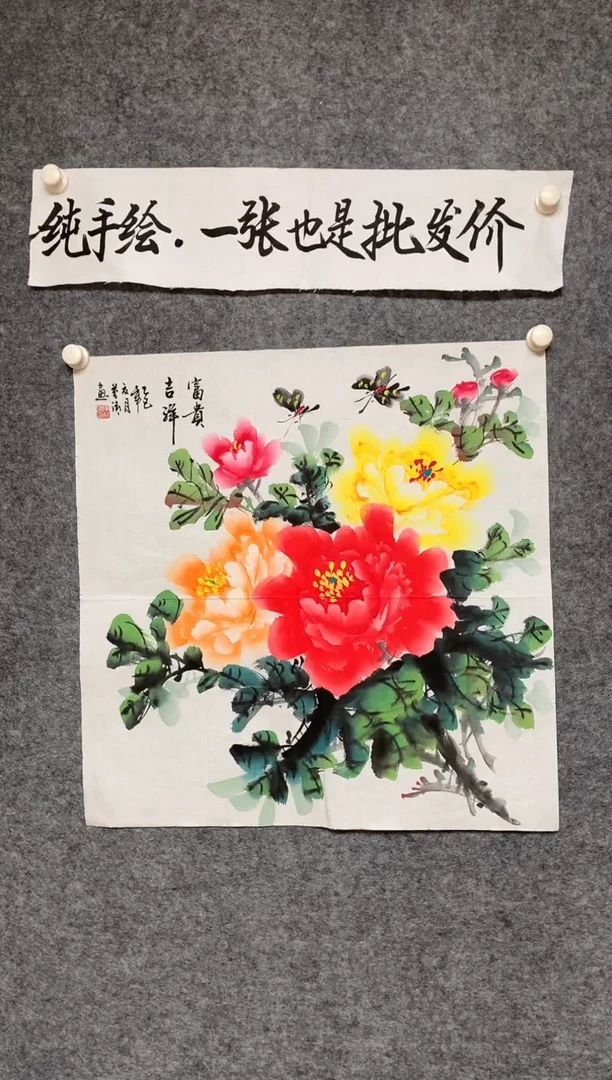 纯手绘.一张也是批发价
富贵
吉祥